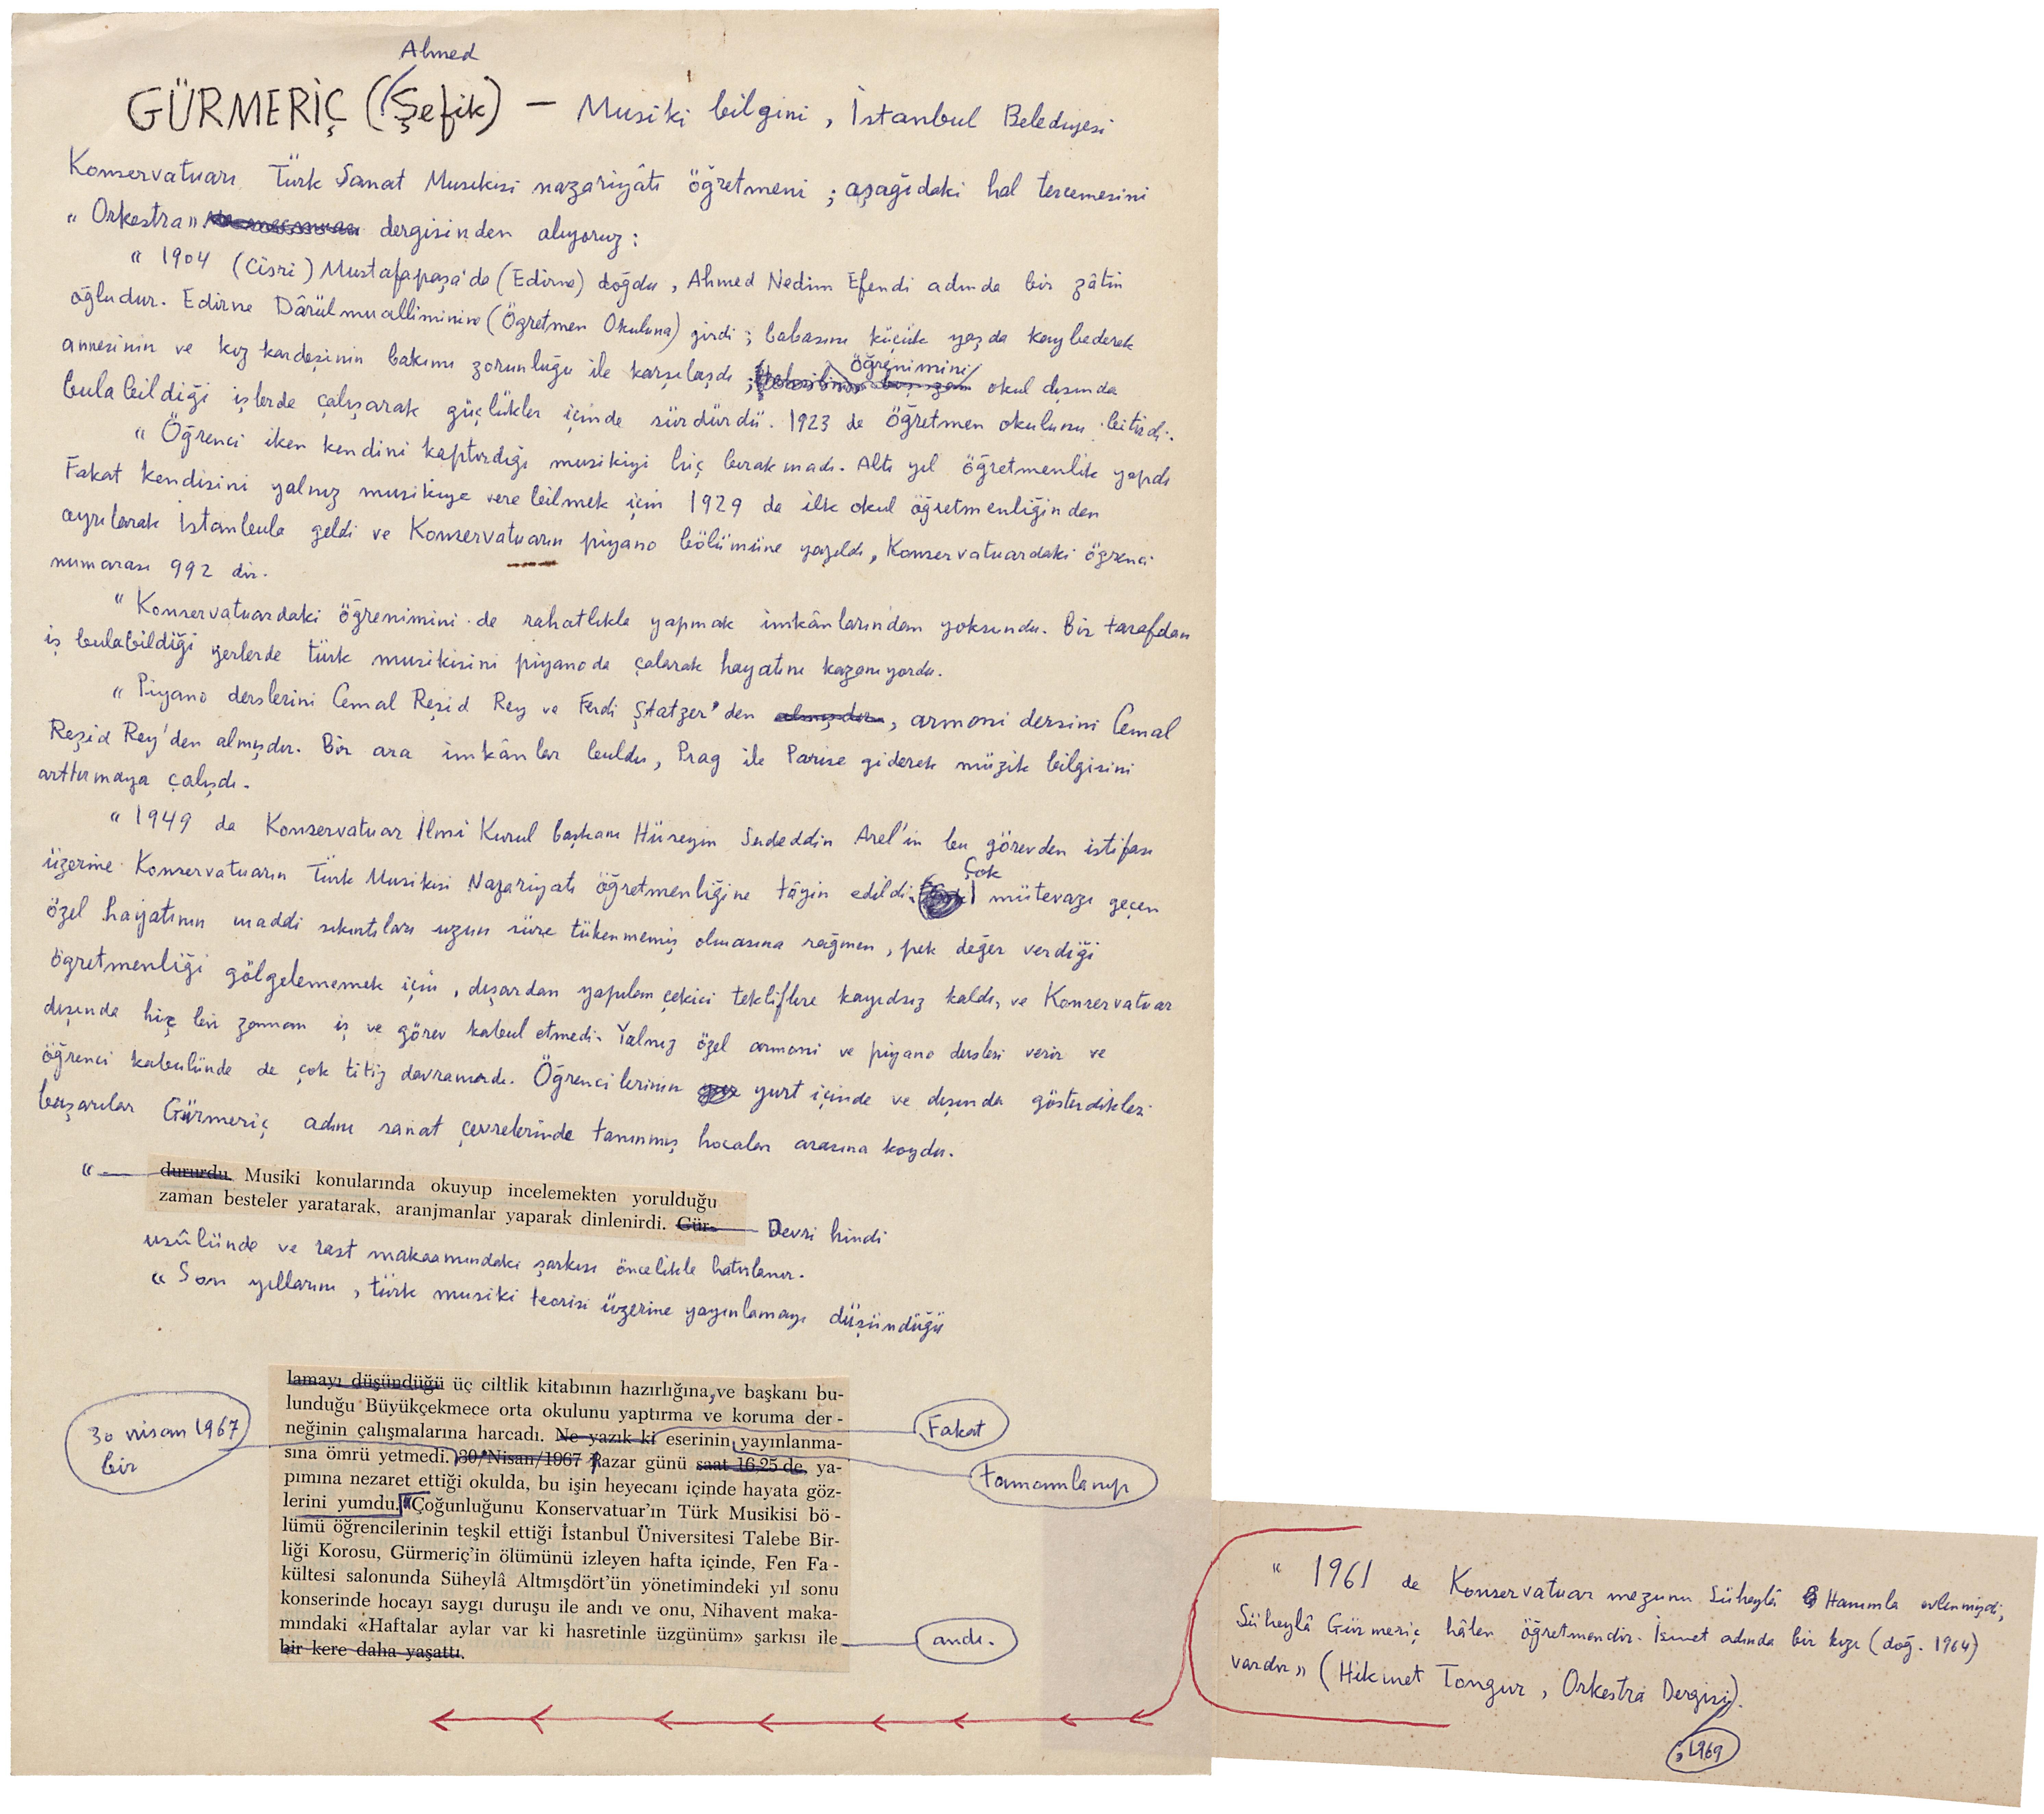 Ahmed
GÜRMERİÇ (Şefik) — Musiki bilgini, İstanbul Belediyesi
Konservatuarı Türk Sanat Musıkisi nazariyâtı öğretmeni ; aşağıdaki hal tercemesini
« Orkestra » dergisinden alıyoruz :
« 1904 (Cisri) Mustafapaşa'da (Edirne) doğdu, Ahmed Nedim Efendi adında bir zâtin
oğludur. Edirne Dârülmualliminine (Öğretmen Okuluna) girdi ; babasını küçük yaşda kaybederek
annesinin ve kız kardeşinin bakımı zorunluğu ile karşılaşdı ; öğrenimini okul dışında
bulabildiği işlerde çalışarak güçlükler içinde sürdürdü. 1923 de öğretmen okulunu bitirdi.
« Öğrenci iken kendini kaptırdığı musikiyi hiç bırakmadı. Altı yıl öğretmenlik yapdı
Fakat kendisini yalnız musikiye verebilmek için 1929 da ilk okul öğretmenliğinden
ayrılarak İstanbula geldi ve Konservatuarın piyano bölümüne yazıldı, Konservatuardaki öğrenci
numarası 992 dir.
« Konservatuardaki öğrenimini de rahatlıkla yapmak imkânlarından yoksundu. Bir tarafdan
iş bulabildiği yerlerde türk musikisini piyanoda çalarak hayatını kazanıyordu.
« Piyano derslerini Cemal Reşid Rey ve Ferdi Ştatzer'den almışdır, armoni dersini Cemal
Reşid Rey'den almışdır. Bir ara imkânlar buldu, Prag ile Parise giderek müzik bilgisini
arttırmaya çalışdı.
« 1949 da Konservatuar İlmi Kurul başkanı Hüseyin Sadeddin Arel'in bu görevden istifası
üzerine Konservatuarın Türk Musikisi Nazariyatı öğretmenliğine tâyin edildi. Çok mütevazı geçen
özel hayatının maddi sıkıntıları uzun süre tükenmemiş olmasına rağmen, pek değer verdiği
öğretmenliği gölgelememek için, dışardan yapılan çekici tekliflere kayıdsız kaldı, ve Konservatuar
dışında hiç bir zaman iş ve görev kabul etmedi. Yalnız özel armoni ve piyano dersleri verir ve
öğrenci kabulünde de çok titiz davranırdı. Öğrencilerinin yurt içinde ve dışında gösterdikleri
başarılar Gürmeriç adını sanat çevrelerinde tanınmış hocaları arasına koydu.
« dururdu. Musiki konularında okuyup incelemekten yorulduğu
zaman besteler yaratarak, aranjmanlar yaparak dinlenirdi. Gür- Devri hindi
usûlünde ve rast makaamındaki şarkısı öncelikle hatırlanır.
« Son yıllarını, türk musiki teorisi üzerine yayınlamayı düşündüğü
lamayı düşündüğü üç ciltlik kitabının hazırlığına, ve başkanı bu-
lunduğu Büyükçekmece orta okulunu yaptırma ve koruma der-
Fakat
neğinin çalışmalarına harcadı. Ne yazık ki eserinin yayınlanma-
30 nisan 1967
bir
sına ömrü yetmedi. 30/Nisan/1967 Pazar günü saat 16.25 de, ya-
tamamlanıp
pımına nezaret ettiği okulda, bu işin heyecanı içinde hayata göz-
lerini yumdu. «Çoğunluğunu Konservatuar'ın Türk Musikisi bö-
lümü öğrencilerinin teşkil ettiği İstanbul Üniversitesi Talebe Bir-
liği Korosu, Gürmeriç'in ölümünü izleyen hafta içinde, Fen Fa-
kültesi salonunda Süheylâ Altmışdört'ün yönetimindeki yıl sonu
konserinde hocayı saygı duruşu ile andı ve onu, Nihavent maka-
mındaki «Haftalar aylar var ki hasretinle üzgünüm» şarkısı ile
andı.
bir kere daha yaşattı.
« 1961 de Konservatuar mezunu Süheylâ Hanımla evlenmişdi,
Süheylâ Gürmeriç hâlen öğretmendir. İsmet adında bir kızı (doğ. 1964)
vardır » (Hikmet Tongur, Orkestra Dergisi).
, 1969